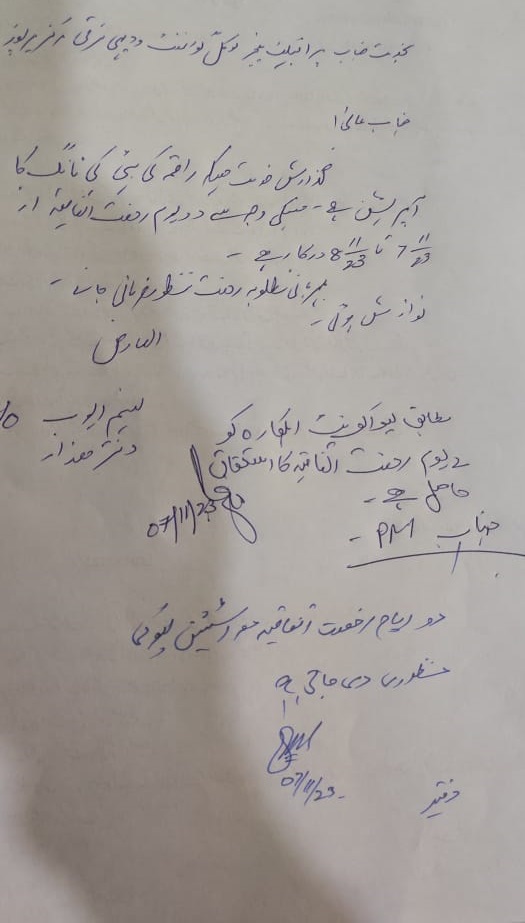 بخدمت جناب پراجیکٹ منیجر لوکل گورنمنٹ و دیہی ترقی مرکز
جناب عالی!
گذارش خدمت ہیکہ راقمہ کی بیٹی کی ٹانگ کا
آپریشن ہے۔ جسکی وجہ سے دو یوم رخصت اتفاقیہ از
7 11/23 تا 8 11/23 درکار ہے۔
مہربانی مطلوبہ رخصت منظور فرمائی جائے۔
نوازش ہوگی۔
العارض
نسیم ایوب
دفتر
مطابق لیو اکاونٹ اہلکارہ کو
یوم رخصت اتفاقیہ کا استحقاق
حاصل ہے۔
07/11/23
جناب PM -
دو ایام رخصت اتفاقیہ مع اسٹیشن لیو کی
منظوری دی جاتی ہے
07/11/23-
دفتر